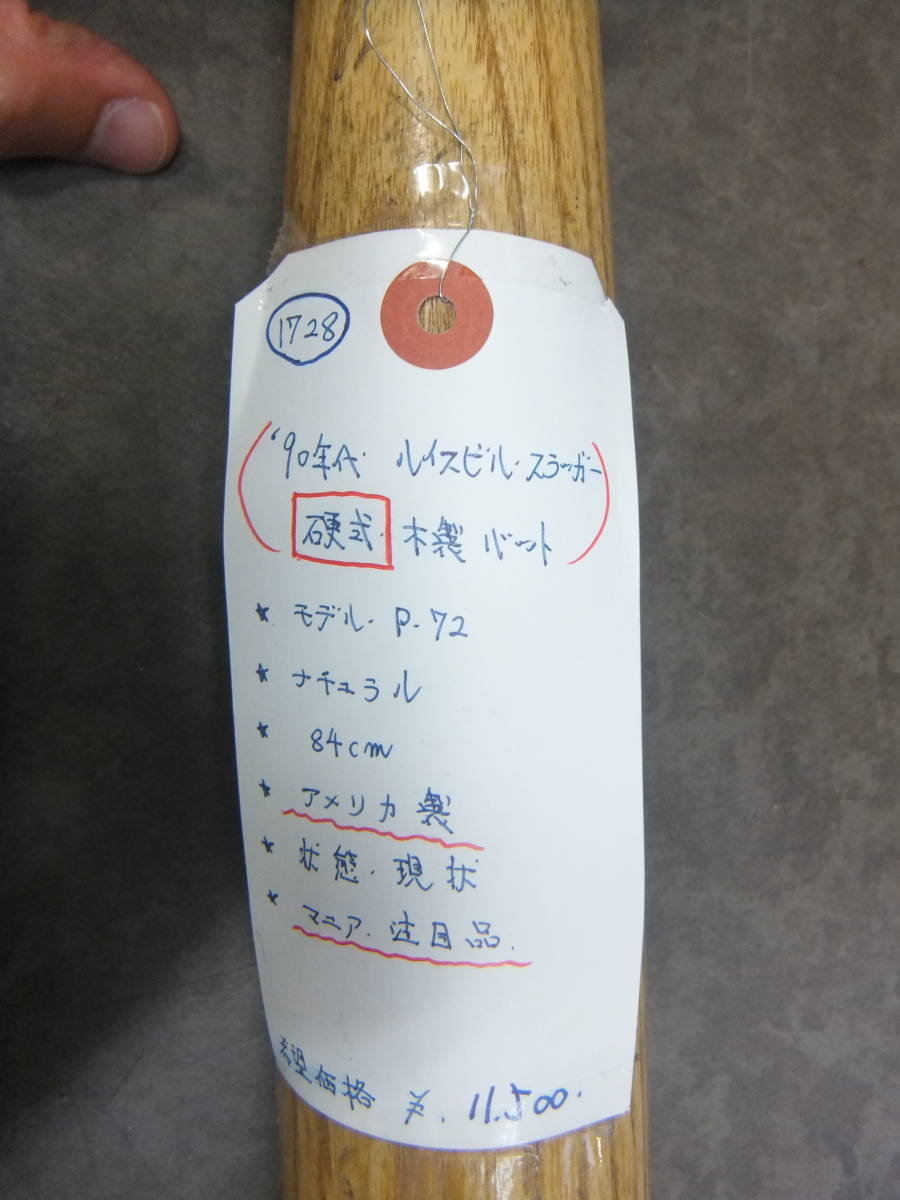 1728
'90年代・ルイスビル・スラッガー
硬式・木製バット
* モデル・P-72
* ナチュラル
* 84cm
* アメリカ製
* 状態・現状
* マニア・注目品.
希望価格 ¥. 11.500.